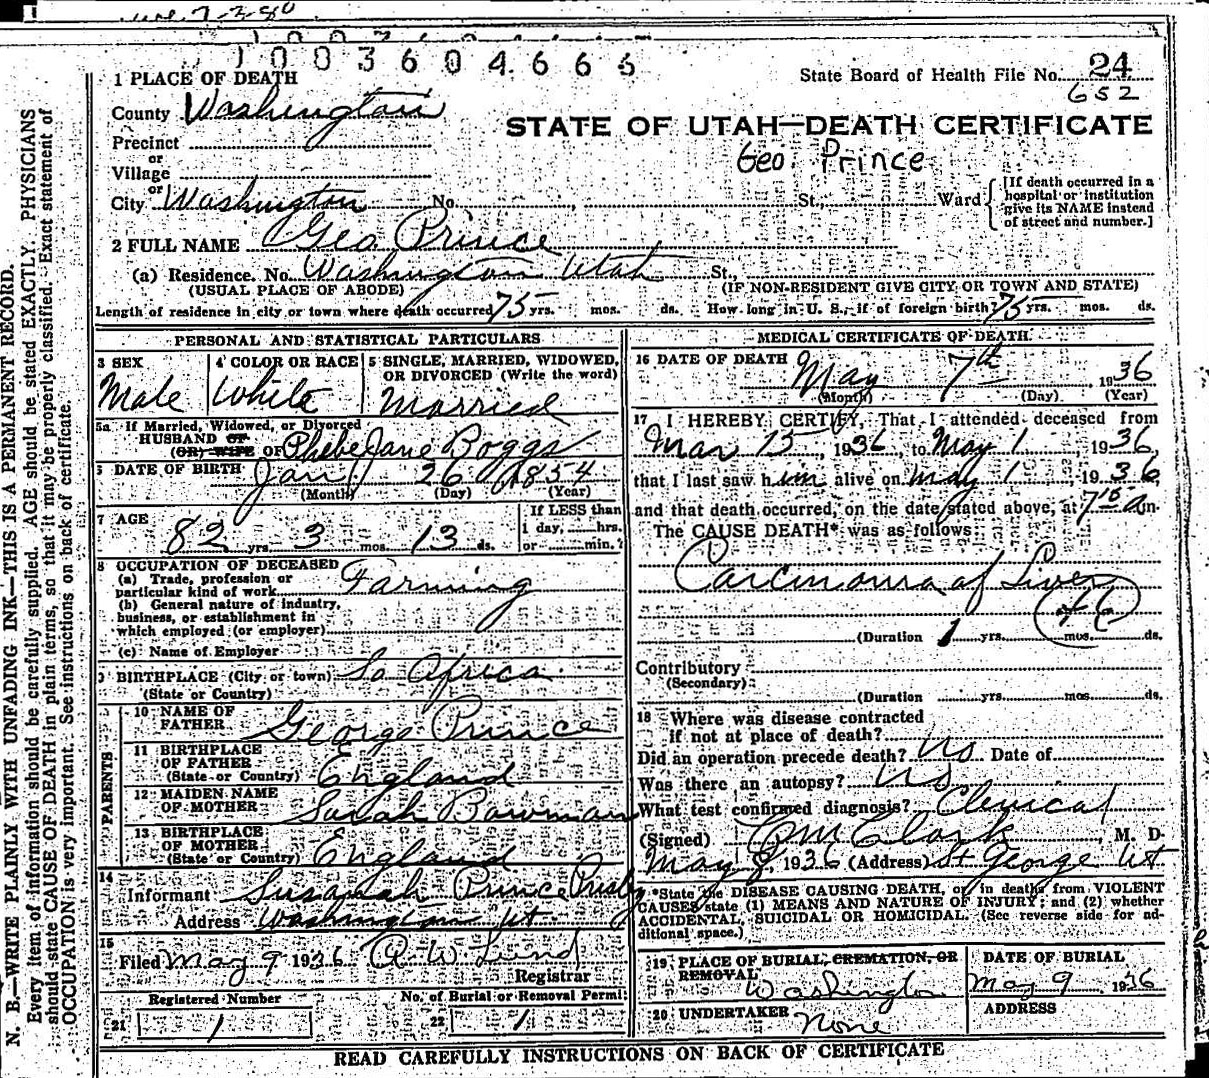 1003604666
1 PLACE OF DEATH
State Board of Health File No. 24
652
County Washington
STATE OF UTAH—DEATH CERTIFICATE
Geo. Prince
Precinct
or
Village
or
City Washington No. St., Ward
[If death occurred in a
hospital or institution
give its NAME instead
of street and number.]
2 FULL NAME Geo Prince
(a) Residence. No. Washington Utah St.,
(USUAL PLACE OF ABODE) (IF NON-RESIDENT GIVE CITY OR TOWN AND STATE)
Length of residence in city or town where death occurred 75 yrs. mos. ds. How long in U. S., if of foreign birth? 75 yrs. mos. ds.
PERSONAL AND STATISTICAL PARTICULARS
3 SEX
Male
4 COLOR OR RACE
White
5 SINGLE, MARRIED, WIDOWED,
OR DIVORCED (Write the word)
Married
5a If Married, Widowed, or Divorced
HUSBAND OF
(OR) WIFE OF Phebe Jane Boggs
6 DATE OF BIRTH Jan 26 1854
(Month) (Day) (Year)
7 AGE
82 yrs. 3 mos. 13 ds.
If LESS than
1 day, hrs.
or min.?
8 OCCUPATION OF DECEASED
(a) Trade, profession or
particular kind of work Farming
(b) General nature of industry,
business, or establishment in
which employed (or employer)
(c) Name of Employer
9 BIRTHPLACE (City or town) So Africa
(State or Country)
PARENTS
10 NAME OF
FATHER George Prince
11 BIRTHPLACE
OF FATHER
(State or Country) England
12 MAIDEN NAME
OF MOTHER Sarah Bowman
13 BIRTHPLACE
OF MOTHER
(State or Country) England
14
Informant Susanah Prince Prisby
Address Washington Ut
15
Filed May 9 1936 A. W. Lund
Registrar
Registered Number
21 1
No. of Burial or Removal Permit
22 1
MEDICAL CERTIFICATE OF DEATH
16 DATE OF DEATH
May 7th, 1936
(Month) (Day) (Year)
17 I HEREBY CERTIFY, That I attended deceased from
Mar 15, 1936, to May 1, 1936
that I last saw him alive on May 1 1936
and that death occurred, on the date stated above, at 7 15 a m.
The CAUSE DEATH* was as follows:
Carcinoma of Liver
46
(Duration 1 yrs. mos. ds.
Contributory
(Secondary)
(Duration yrs. mos. ds.
18 Where was disease contracted
if not at place of death?
Did an operation precede death? No Date of
Was there an autopsy? No
What test confirmed diagnosis? Clinical
(Signed) M. Clark, M. D.
May 8, 1936 (Address) St George Ut
*State the DISEASE CAUSING DEATH, or in deaths from VIOLENT
CAUSES state (1) MEANS AND NATURE OF INJURY; and (2) whether
ACCIDENTAL, SUICIDAL OR HOMICIDAL. (See reverse side for ad-
ditional space.)
19 PLACE OF BURIAL, CREMATION, OR
REMOVAL
Washington
DATE OF BURIAL
May 9, 1936
20 UNDERTAKER
None
ADDRESS
READ CAREFULLY INSTRUCTIONS ON BACK OF CERTIFICATE
N. B.—WRITE PLAINLY WITH UNFADING INK—THIS IS A PERMANENT RECORD.
Every item of information should be carefully supplied. AGE should be stated EXACTLY. PHYSICIANS
should state CAUSE OF DEATH in plain terms, so that it may be properly classified. Exact statement of
OCCUPATION is very important. See instructions on back of certificate.